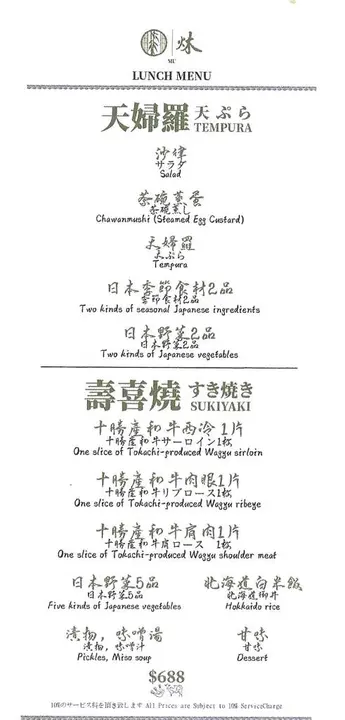 炑
MU
LUNCH MENU
天婦羅 天ぷら
TEMPURA
沙律
サラダ
Salad
茶碗蒸蛋
茶碗蒸し
Chawanmushi (Steamed Egg Custard)
天婦羅
天ぷら
Tempura
日本季節食材2品
季節食材2品
Two kinds of seasonal Japanese ingredients
日本野菜2品
日本野菜2品
Two kinds of Japanese vegetables
壽喜燒 すき焼き
SUKIYAKI
十勝產和牛西冷 1片
十勝産和牛サーロイン1枚
One slice of Tokachi-produced Wagyu sirloin
十勝產和牛肉眼1片
十勝産和牛リブロース1枚
One slice of Tokachi-produced Wagyu ribeye
十勝產和牛肩肉1片
十勝産和牛肩ロース 1枚
One slice of Tokachi-produced Wagyu shoulder meat
日本野菜5品 北海道白米飯
日本野菜5品 北海道御丼
Five kinds of Japanese vegetables Hokkaido rice
漬物, 味噌湯 甘味
漬物, 味噌汁 甘味
Pickles, Miso soup Dessert
$688
10%のサービス料を頂き致します All Prices are Subject to 10% ServiceCharge